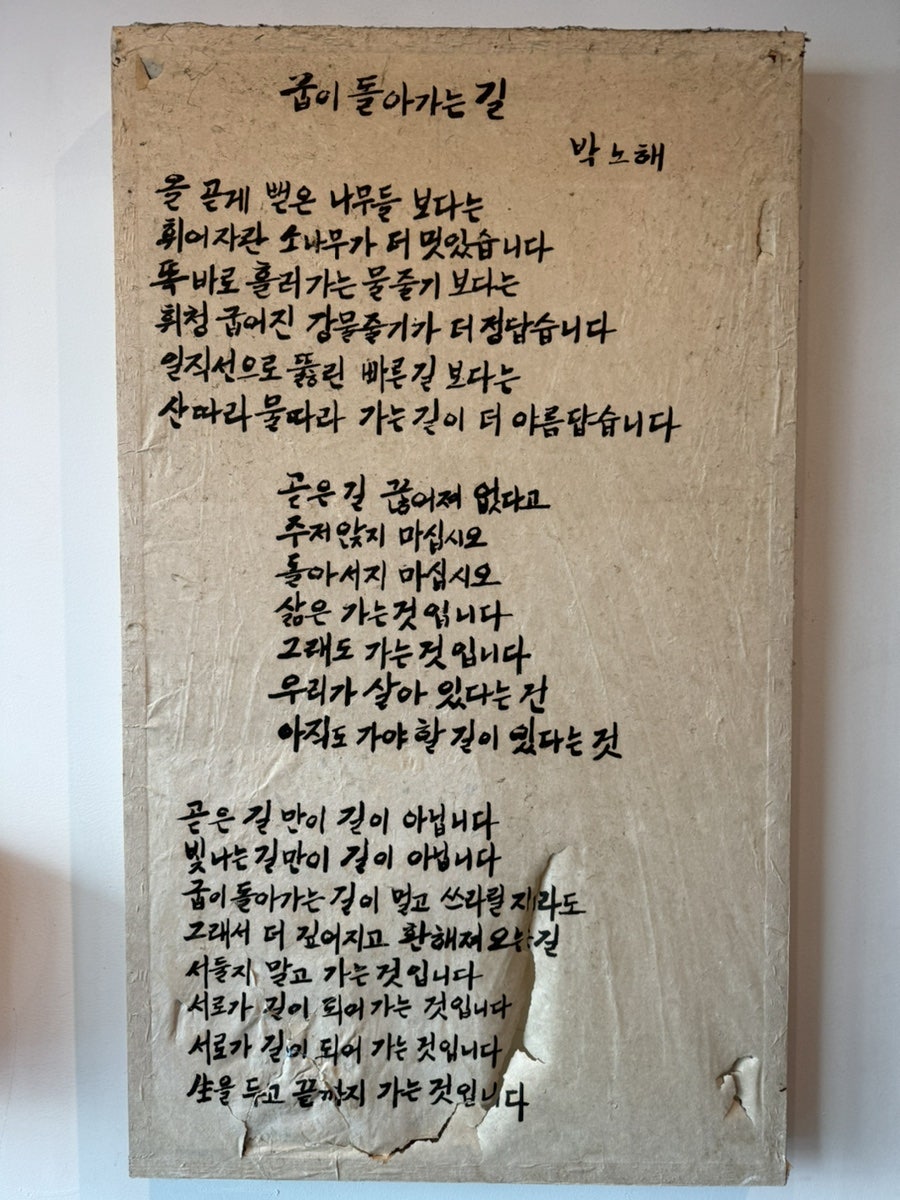 굽이 돌아가는 길
박노해
올 곧게 뻗은 나무들 보다는
휘어자란 소나무가 더 멋있습니다
똑바로 흘러가는 물줄기 보다는
휘청 굽어진 강물줄기가 더 정답습니다
일직선으로 뚫린 빠른길 보다는
산따라 물따라 가는길이 더 아름답습니다
곧은길 끊어져 없다고
주저앉지 마십시오
돌아서지 마십시오
삶은 가는것입니다
그래도 가는것입니다
우리가 살아 있다는 건
아직도 가야 할 길이 있다는 것
곧은 길만이 길이 아닙니다
빛나는길만이 길이 아닙니다
굽이 돌아가는 길이 멀고 쓰라릴지라도
그래서 더 깊어지고 환해져오는길
서둘지 말고 가는것입니다
서로가 길이 되어가는 것입니다
서로가 길이 되어 가는것입니다
生을 두고 끝까지 가는것입니다